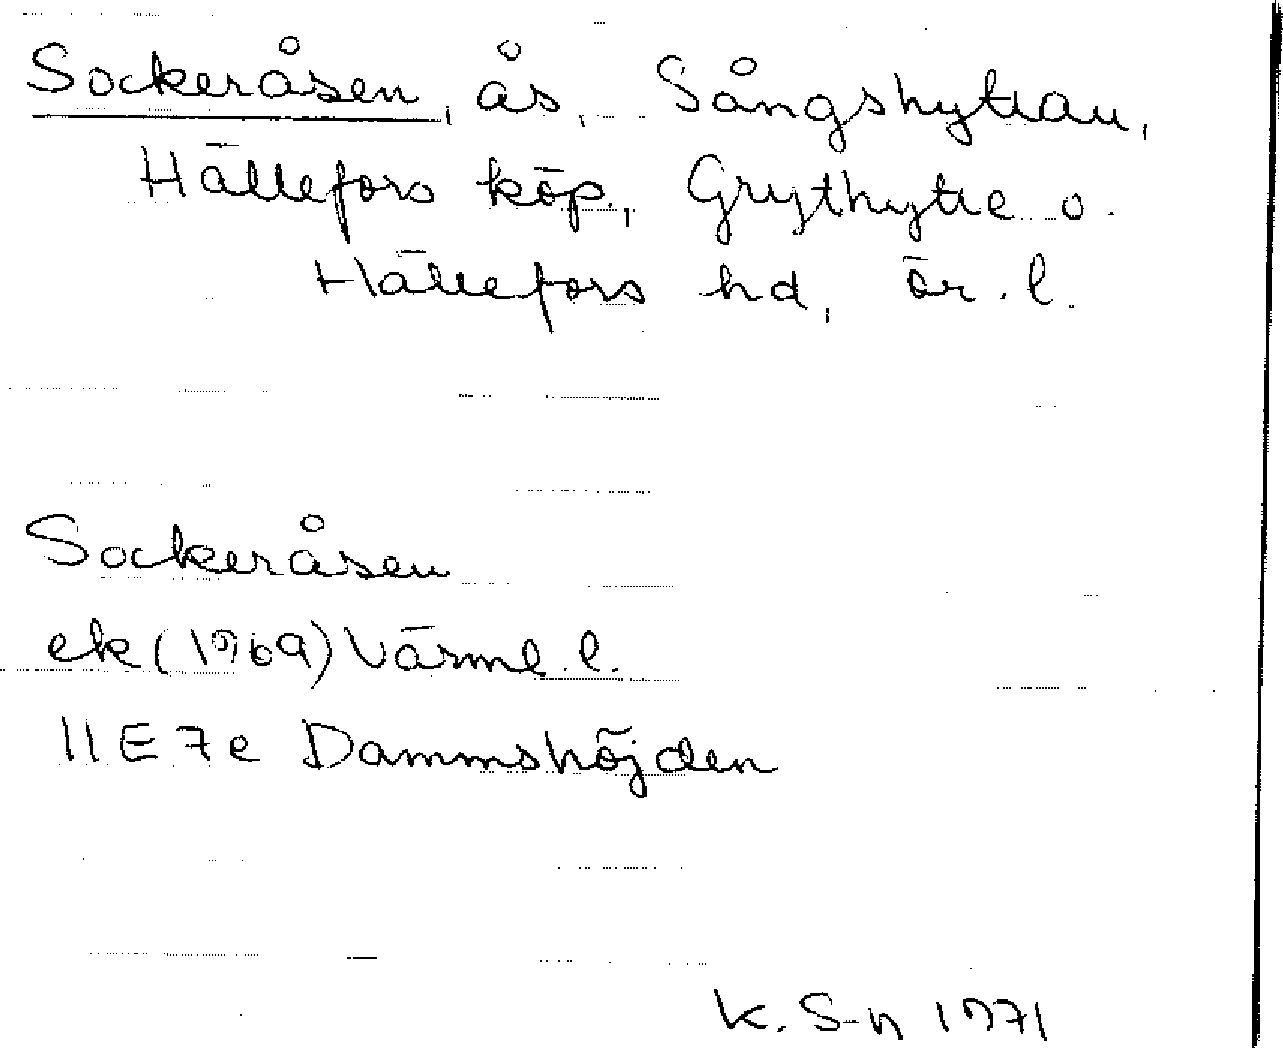 Sockeråsen, ås, Sångshyttan,
Hällefors köp., Grythytte o.
Hällefors hd, Ör. l.
Sockeråsen
ek (1969) Värml. l.
11E 7e Dammshöjden
K. S-n 1971